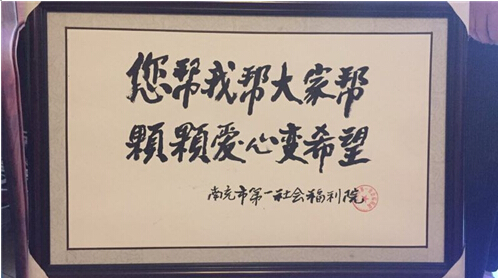 您帮我帮大家帮
顆顆爱心变希望
南充市第一社会福利院